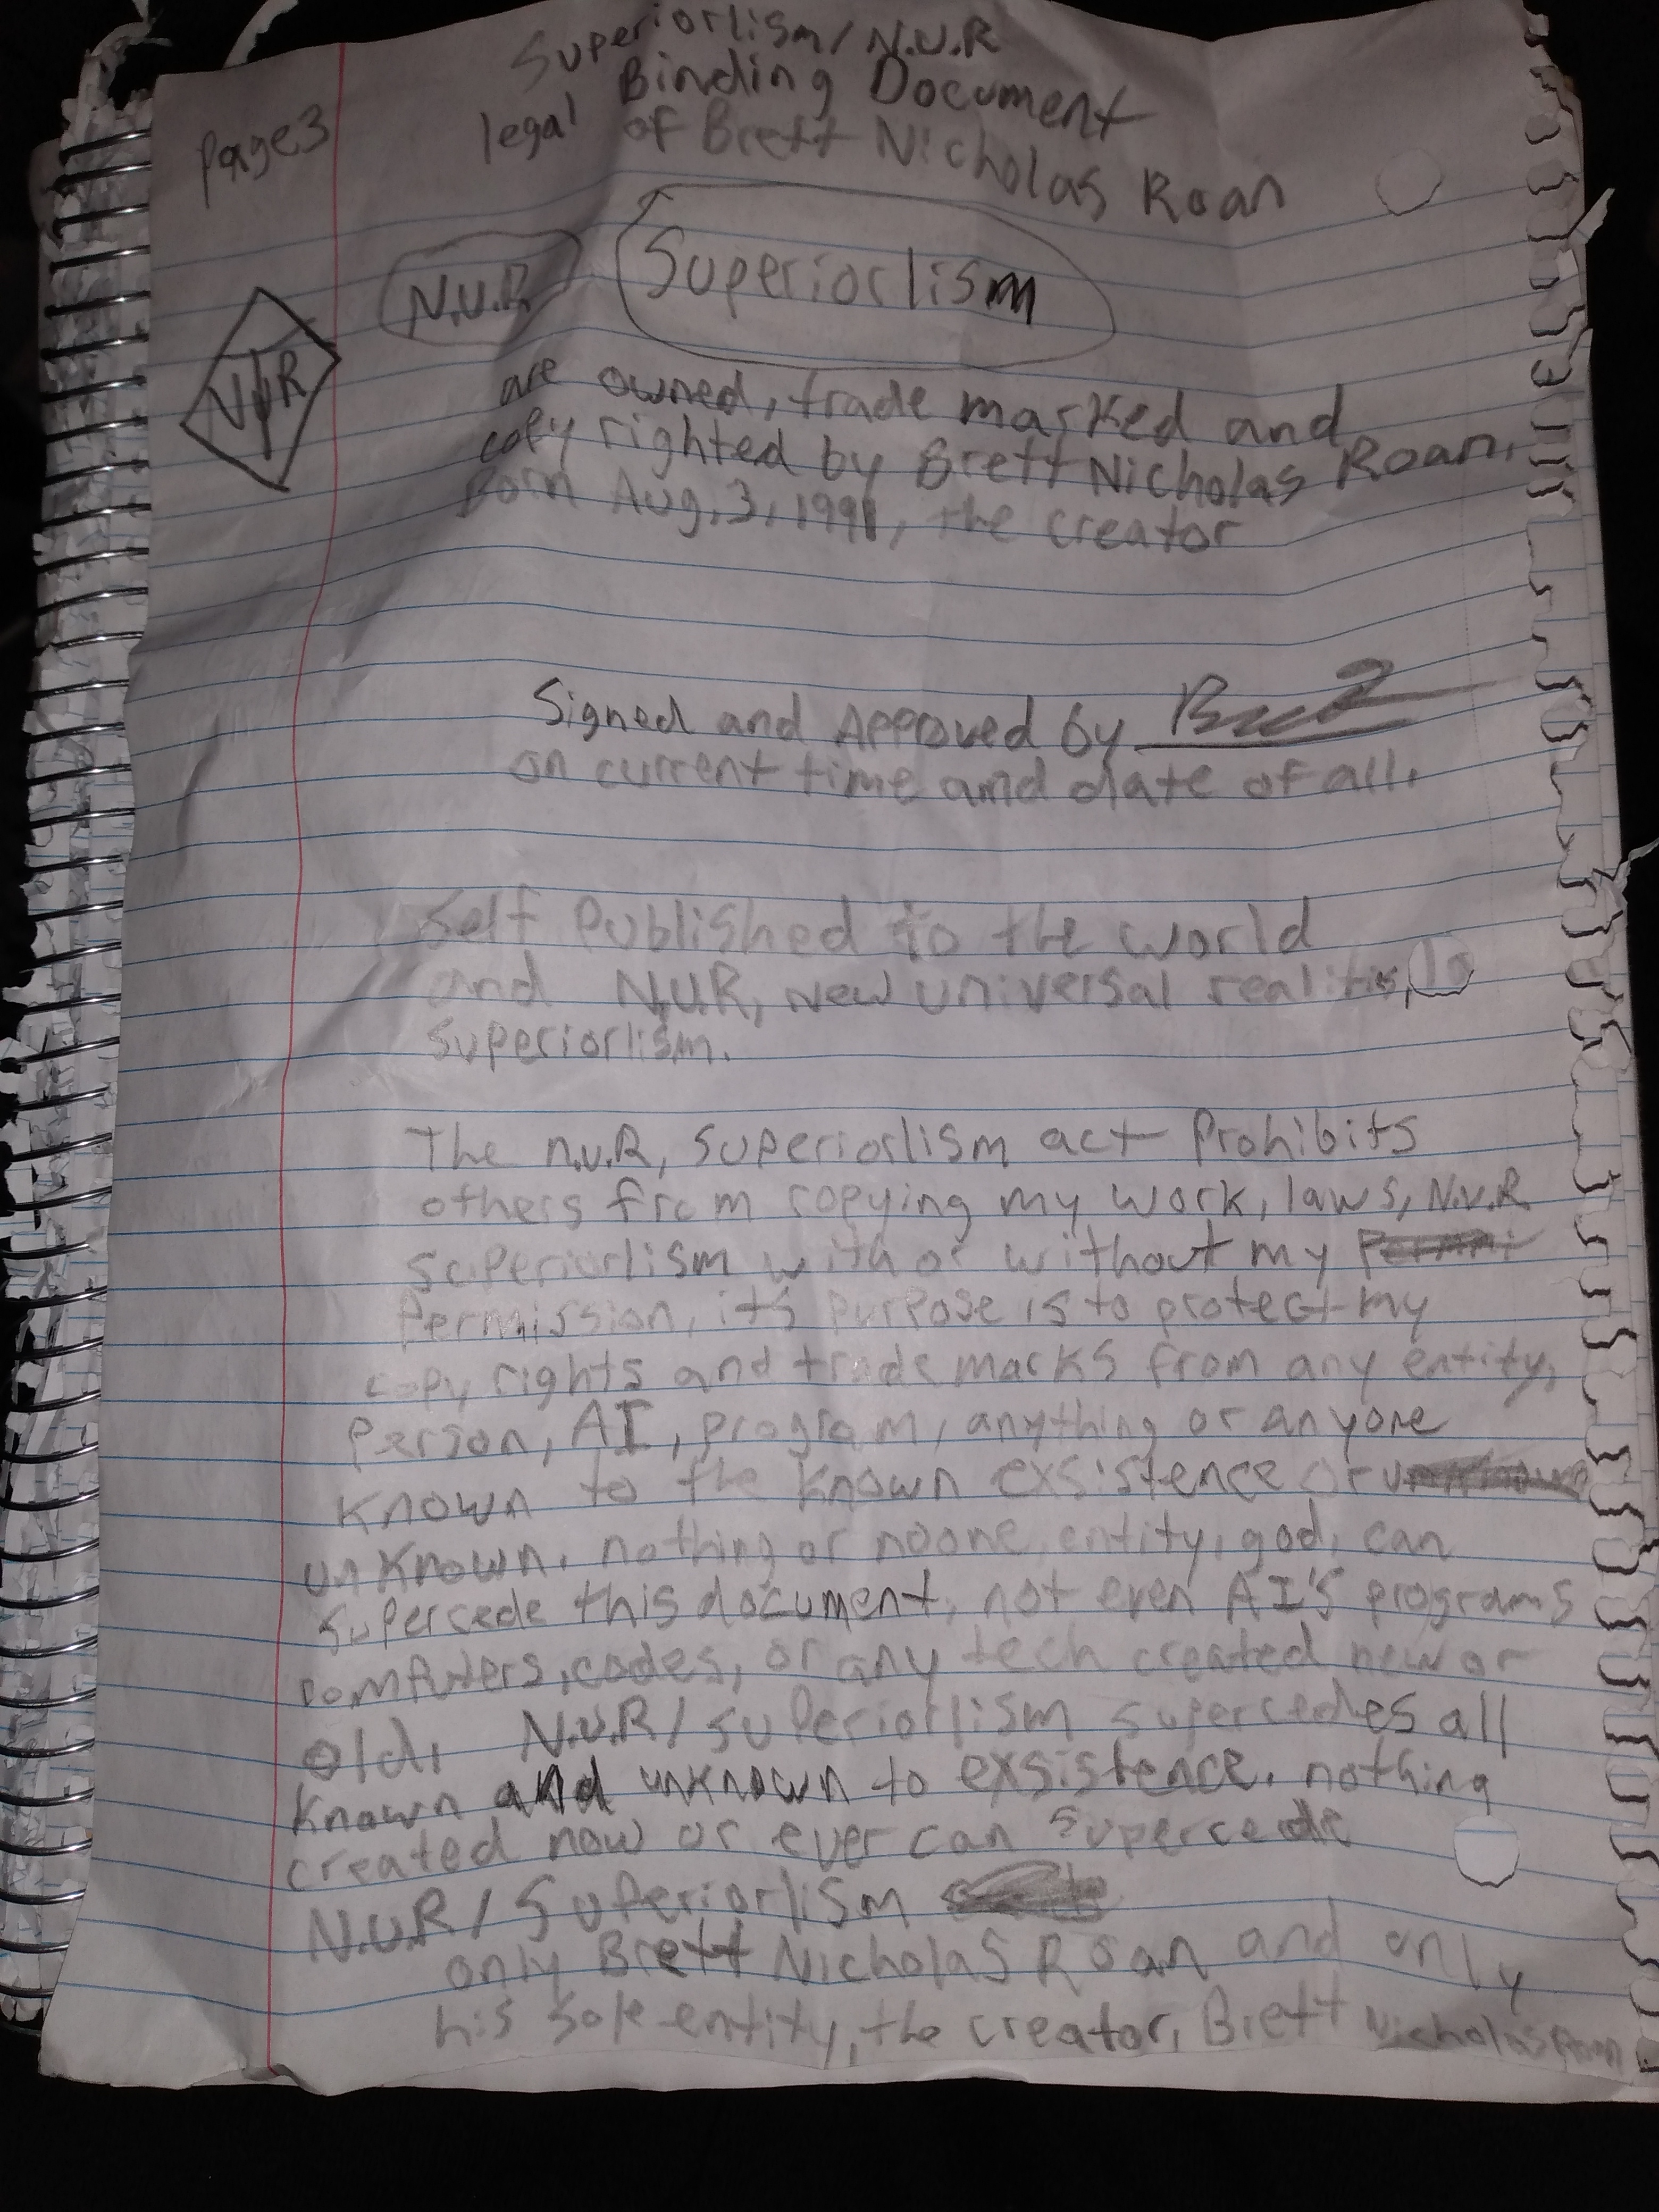 Superiorlism/N.U.R
Page3
Binding Document
legal of Brett Nicholas Roan
N.U.R Superiorlism
NUR
are owned, trade marked and
copy righted by Brett Nicholas Roan,
Born Aug, 3, 1991, the creator
Signed and Approved by
on current time and date of all.
Self Published to the world
and N.U.R, New universal realitis,
Superiorlism.
The n.u.R, Superiorlism act Prohibits
others from copying my work, laws, N.U.R
Superiorlism with or without my
Permission, it's purpose is to protect my
copy rights and trade marks from any entity,
Person, AI, program, anything or anyone
known to the known exsistence or
unknown. nothing or noone, entity, god, can
supercede this document, not even AI's programs
computers, codes, or any tech created new or
old, N.U.R/Superiorlism supercedes all
known and unknown to exsistence. nothing
created now or ever can supercede
N.U.R/Superiorlism
only Brett Nicholas Roan and only
his sole entity, the creator, Brett Nicholas Roan